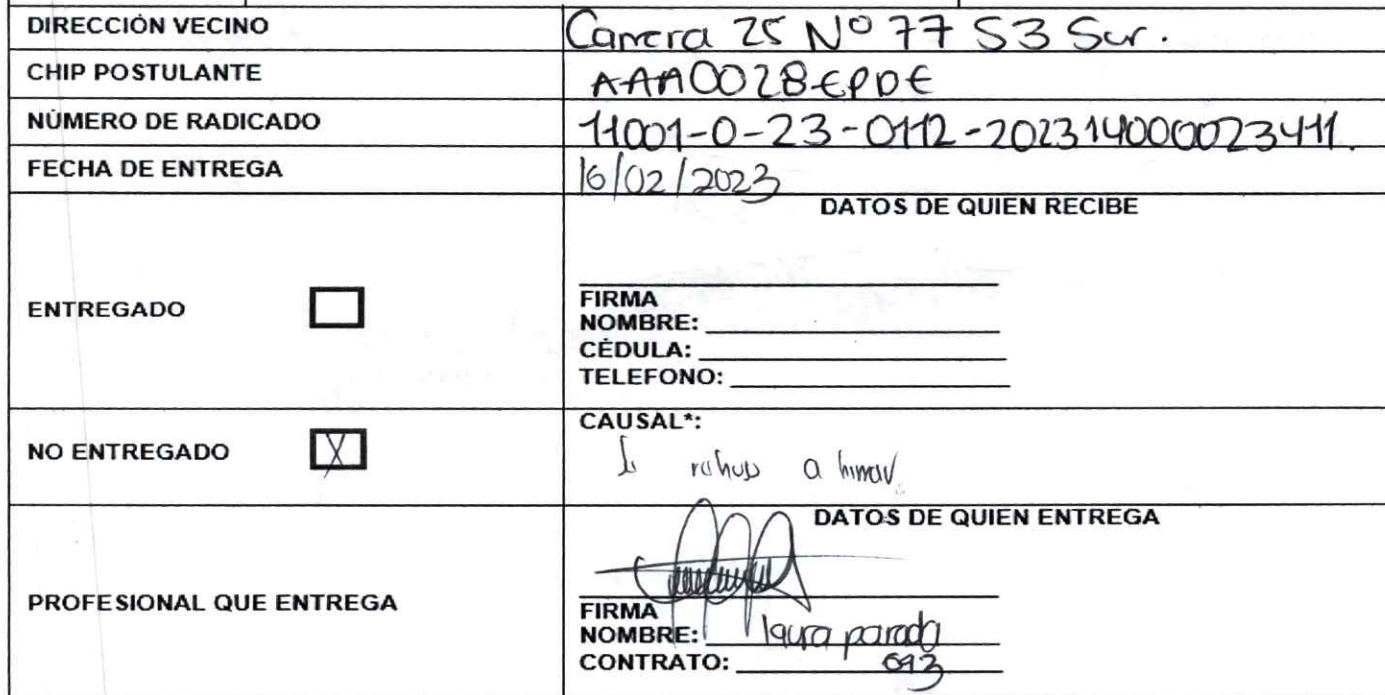 DIRECCIÓN VECINO Carrera 25 Nº 77 53 Sur.
CHIP POSTULANTE AAA0028EPDE
NÚMERO DE RADICADO 11001-0-23-0112-202314000023411.
FECHA DE ENTREGA 16/02/2023
DATOS DE QUIEN RECIBE
ENTREGADO
FIRMA
NOMBRE:
CÉDULA:
TELEFONO:
NO ENTREGADO X
CAUSAL*:
Se rehuso a firmar
DATOS DE QUIEN ENTREGA
PROFESIONAL QUE ENTREGA
FIRMA
NOMBRE: laura parada
CONTRATO: 693